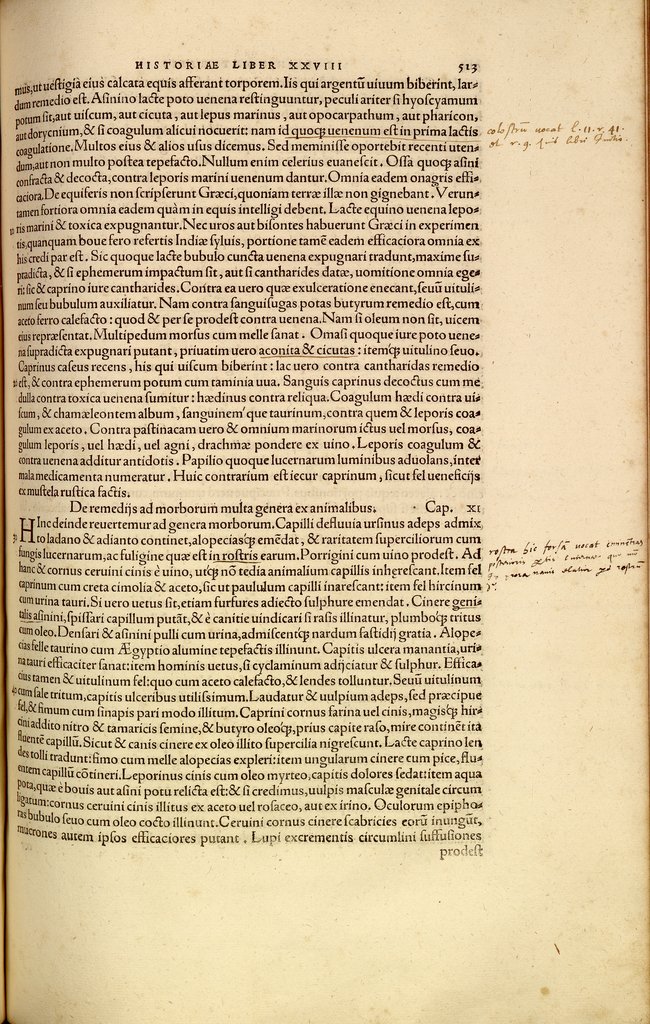 HISTORIAE LIBER XXVIII 513
mus, ut uestigia eius calcata equis afferant torporem. Iis qui argentū uiuum biberint, lar-
dum remedio est. Asinino lacte poto uenena restinguuntur, peculiariter si hyoscyamum
potum sit, aut uiscum, aut cicuta, aut lepus marinus, aut opocarpathum, aut pharicon,
aut dorycnium, & si coagulum alicui nocuerit: nam id quoq; uenenum est in prima lactis
coagulatione. Multos eius & alios usus dicemus. Sed meminisse oportebit recenti uten-
dum, aut non multo postea tepefacto. Nullum enim celerius euanescit. Ossa quoq; asini
confracta & decocta, contra leporis marini uenenum dantur. Omnia eadem onagris effi-
caciora. De equiferis non scripserunt Græci, quoniam terræ illæ non gignebant. Verun-
tamen fortiora omnia eadem quàm in equis intelligi debent. Lacte equino uenena lepo-
ris marini & toxica expugnantur. Nec uros aut bisontes habuerunt Græci in experimen
tis, quanquam boue fero refertis Indiæ syluis, portione tamē eadem efficaciora omnia ex
his credi par est. Sic quoque lacte bubulo cuncta uenena expugnari tradunt, maxime su-
pradicta, & si ephemerum impactum sit, aut si cantharides datæ, uomitione omnia ege-
ri: sic & caprino iure cantharides. Cōtra ea uero quæ exulceratione enecant, seuū uituli-
num seu bubulum auxiliatur. Nam contra sanguisugas potas butyrum remedio est, cum
aceto ferro calefacto: quod & per se prodest contra uenena. Nam si oleum non sit, uicem
eius repræsentat. Multipedum morsus cum melle sanat. Omasi quoque iure poto uene-
na supradicta expugnari putant, priuatim uero aconita & cicutas: itemq; uitulino seuo.
Caprinus caseus recens, his qui uiscum biberint: lac uero contra cantharidas remedio
est, & contra ephemerum potum cum taminia uua. Sanguis caprinus decoctus cum me
dulla contra toxica uenena sumitur: hædinus contra reliqua. Coagulum hædi contra ui-
scum, & chamæleontem album, sanguinem'que taurinum, contra quem & leporis coa-
gulum ex aceto. Contra pastinacam uero & omnium marinorum ictus uel morsus, coa-
gulum leporis, uel hædi, uel agni, drachmæ pondere ex uino. Leporis coagulum &
contra uenena additur antidotis. Papilio quoque lucernarum luminibus aduolans, inter
mala medicamenta numeratur. Huic contrarium est iecur caprinum, sicut fel ueneficijs
ex mustela rustica factis.
De remedijs ad morborum multa genera ex animalibus. Cap. XI
HInc deinde reuertemur ad genera morborum. Capilli defluuia ursinus adeps admix
to ladano & adianto continet, alopecias'q; emēdat, & raritatem superciliorum cum
fungis lucernarum, ac fuligine quæ est in rostris earum. Porrigini cum uino prodest. Ad
hanc & cornus ceruini cinis è uino, utq; nō tedia animalium capillis inherescant. Item fel
caprinum cum creta cimolia & aceto, sic ut paululum capilli inarescant: item fel hircinum
cum urina tauri. Si uero uetus sit, etiam furfures adiecto sulphure emendat. Cinere geni-
talis asinini, spissari capillum putāt, & è canitie uindicari si rasis illinatur, plumbo'q; tritus
cum oleo. Densari & asinini pulli cum urina, admiscent'q; nardum fastidij gratia. Alope-
cias felle taurino cum Ægyptio alumine tepefactis illinunt. Capitis ulcera manantia, uri-
na tauri efficaciter sanat: item hominis uetus, si cyclaminum adijciatur & sulphur. Effica-
cius tamen & uitulinum fel: quo cum aceto calefacto, & lendes tolluntur. Seuū uitulinum
cum sale tritum, capitis ulceribus utilissimum. Laudatur & uulpium adeps, sed præcipue
fel, & fimum cum sinapis pari modo illitum. Caprini cornus farina uel cinis, magis'q; hir-
cini addito nitro & tamaricis semine, & butyro oleo'q;, prius capite raso, mire continēt ita
fluentē capillū. Sicut & canis cinere ex oleo illito supercilia nigrescunt. Lacte caprino len
des tolli tradunt: fimo cum melle alopecias expleri: item ungularum cinere cum pice, flu-
entem capillū cōtineri. Leporinus cinis cum oleo myrteo, capitis dolores sedat: item aqua
pota, quæ è bouis aut asini potu relicta est: & si credimus, uulpis masculæ genitale circum
ligatum: cornus ceruini cinis illitus ex aceto uel rosaceo, aut ex irino. Oculorum epipho-
ras bubulo seuo cum oleo cocto illinunt. Ceruini cornus cinere scabricies eorū inungūt,
mucrones autem ipsos efficaciores putant. Lupi excrementis circumlini suffusiones
prodest
colostrū uocat l. 11. r. 41.
et r. 9.
rostra hic forsā uocat